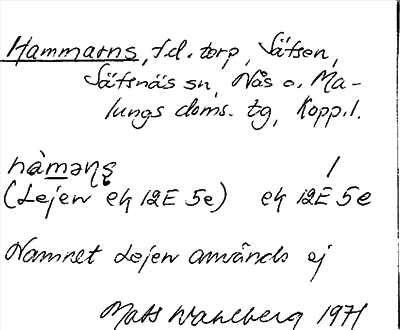 Hammarns, f.d. torp, Säfsen,
Säfsnäs sn, Nås o. Ma-
lungs doms. tg, Kopp. l.
hàməṇş /
(Lejen ek 12E 5e) ek 12E 5e
Namnet Lejen används ej
Mats Wahlberg 1971